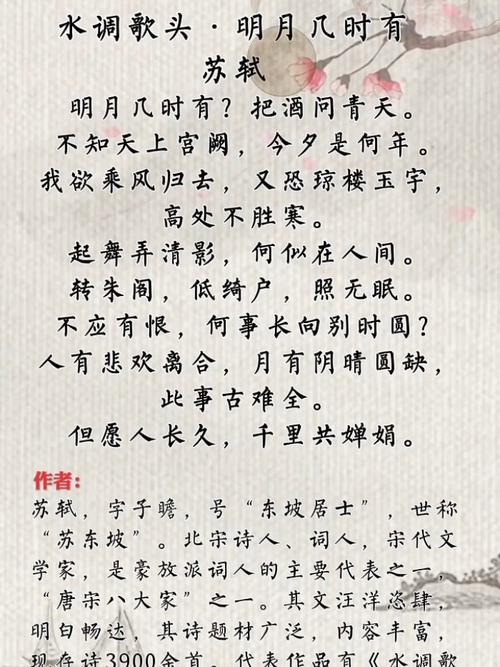 水调歌头·明月几时有
苏轼
明月几时有？把酒问青天。
不知天上宫阙，今夕是何年。
我欲乘风归去，又恐琼楼玉宇，
高处不胜寒。
起舞弄清影，何似在人间。
转朱阁，低绮户，照无眠。
不应有恨，何事长向别时圆？
人有悲欢离合，月有阴晴圆缺，
此事古难全。
但愿人长久，千里共婵娟。
作者：
苏轼，字子瞻，号“东坡居士”，世称
“苏东坡”。北宋诗人、词人，宋代文
学家，是豪放派词人的主要代表之一，
“唐宋八大家”之一。其文汪洋恣肆，
明白畅达，其诗题材广泛，内容丰富，
现存诗3900余首。代表作品有《水调歌